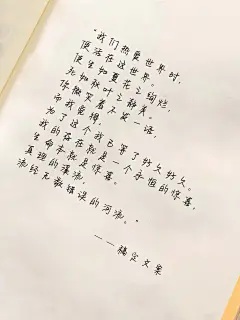 “我们热爱世界时,
便活在这世界。
使生如夏花之绚烂,
死如秋叶之静美。
你微笑着不笑一语,
而我觉得,
为了这个我已等了好久好久。
我的存在就是一个永恒的惊喜,
生命本就是惊喜。
真理的溪流,
流经无数错误的河流。”
——稿定文案